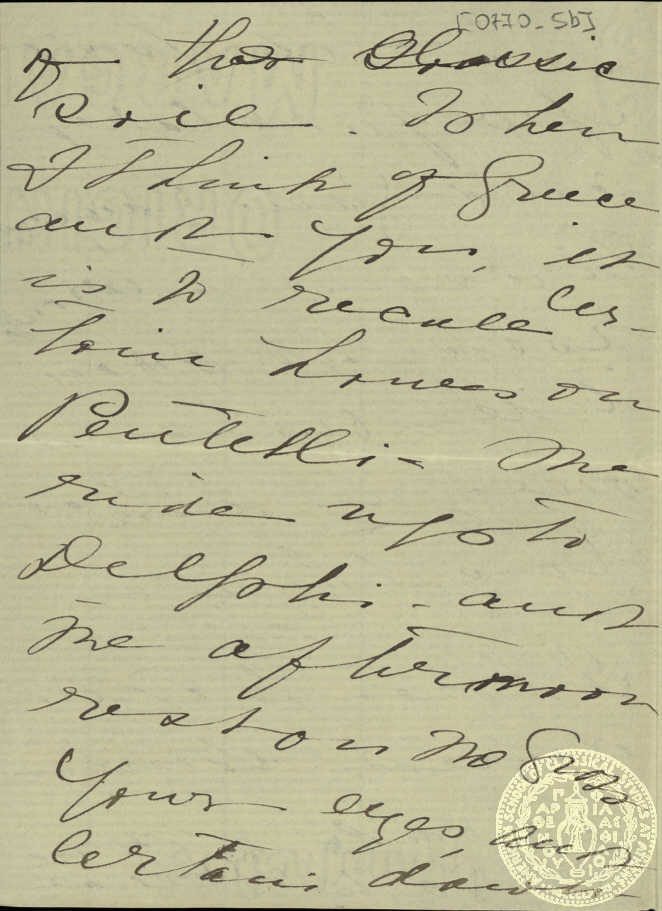 [07F0-5b5]
of that Classic
soil. When
I think of Greece
and you, it
is to recall cer-
tain hours on
Pentelli - the
ride up to
Delphi - and
the afternoon
rest on the Grass
Your eyes, and
certain dawns